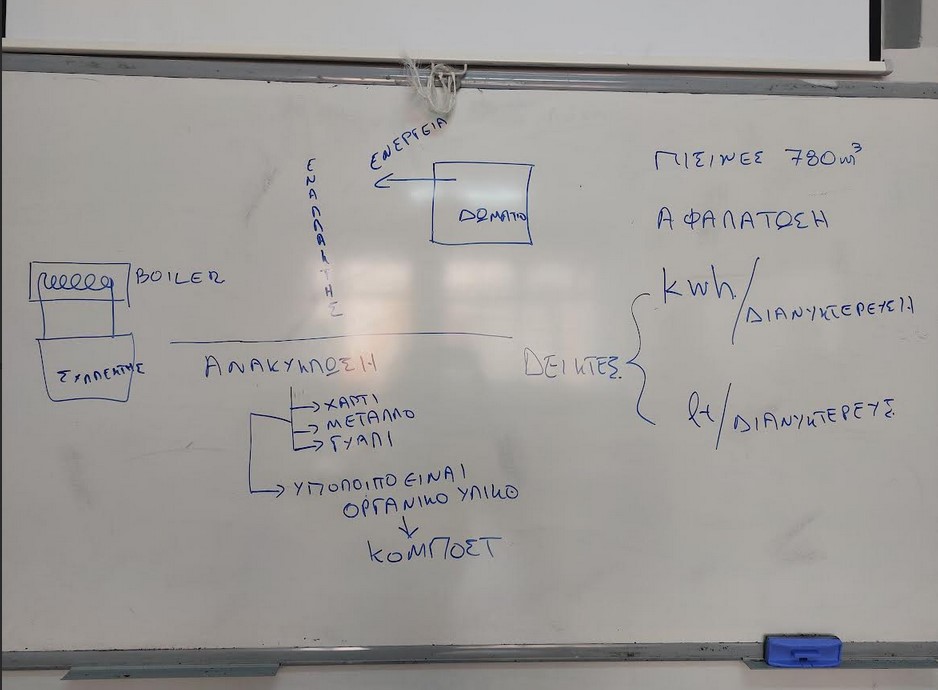 ΕΝΕΡΓΕΙΑ
ΕΝΑΛΛΑΚΤΗΣ
ΔΩΜΑΤΙΟ
BOILER
ΣΥΛΛΕΚΤΗΣ
ΑΝΑΚΥΚΛΩΣΗ
ΧΑΡΤΙ
ΜΕΤΑΛΛΟ
ΓΥΑΛΙ
ΥΠΟΛΟΙΠΟ ΕΙΝΑΙ
ΟΡΓΑΝΙΚΟ ΥΛΙΚΟ
ΚΟΜΠΟΣΤ
ΠΙΣΙΝΕΣ 780m³
ΑΦΑΛΑΤΩΣΗ
ΔΕΙΚΤΕΣ
kwh/ΔΙΑΝΥΚΤΕΡΕΥΣΗ
lt/ΔΙΑΝΥΚΤΕΡΕΥΣ